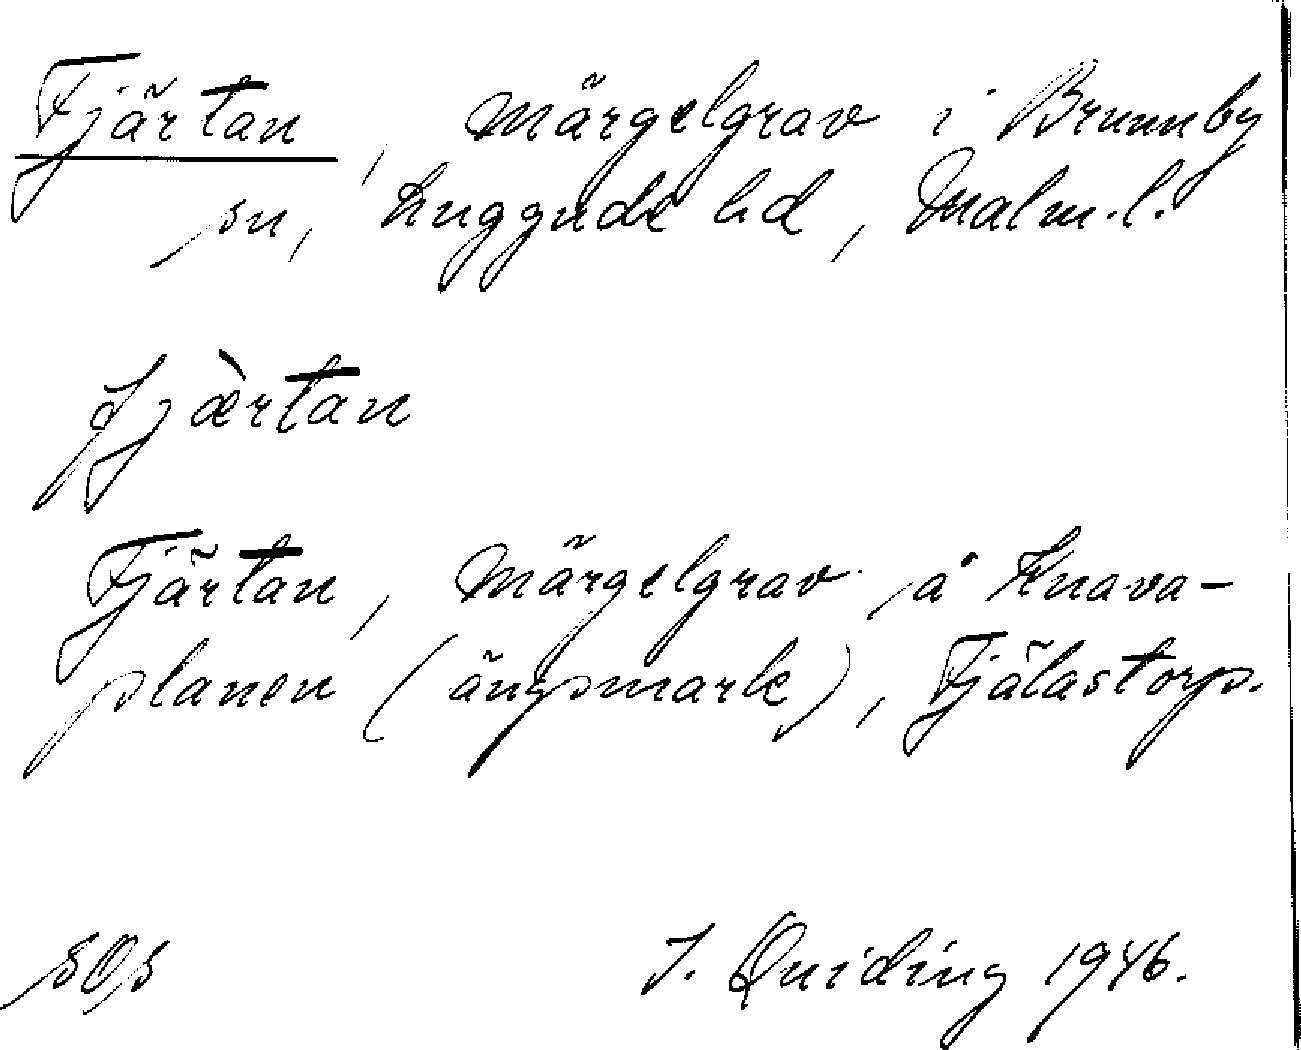 Fjärtan, märgelgrav i Brunnby
sn, Luggude hd, Malm.l.
fjæ̀rtan
Fjärtan, Märgelgrav på Knava-
planen (ängsmark), Fjälastorp.
I. Quiding 1946.